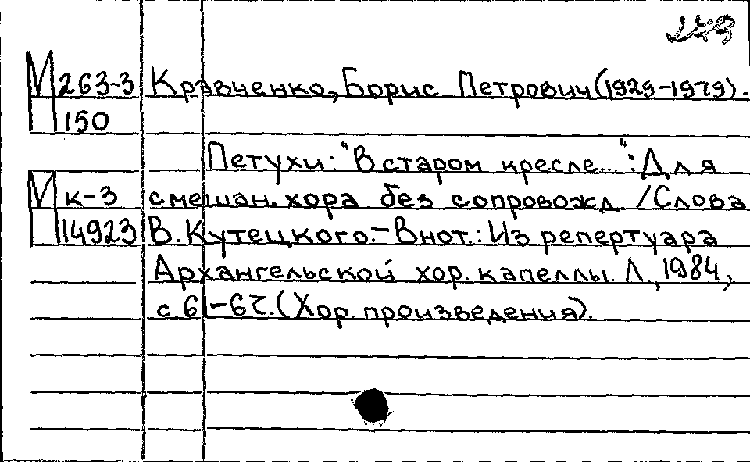 М 263-3 Кравченко, Борис Петрович (1929-1979).
150
Петухи: "В старом кресле...": Для
М к-3 смешан. хора без сопровожд. / Слова
14923 В. Кутецкого. - В нот.: Из репертуара
Архангельской хор. капеллы. Л., 1984,
с 61-67. (Хор. произведения).